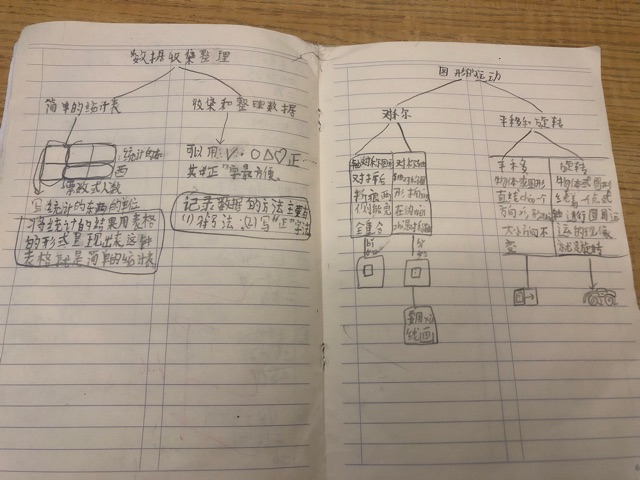 数据收集整理
简单的统计表
统计的东
西
票数或人数
写统计的东西的单位
将统计的结果用表格
的形式呈现出来这种
表格就是简单的统计表
收集和整理数据
可以用:√·○△♡正…
其中"正"字最方便。
记录数据的方法主要有
(1)符号法:(2)写"正"字法
图形的运动
对称
轴对称图形
对折后
折痕两
侧能完
全重合
对称轴
折痕
所在的
要用
线画
平移和旋转
平移
物体或图形
直线
方向
大小方向不
变
旋转
物体或图形
绕着一个点或
进行圆周运
动的现象
就是旋转